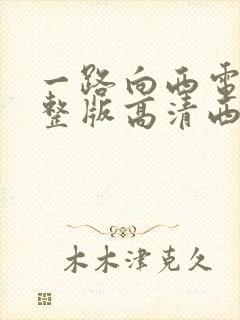 一路向西电
整版高清西
木木津克久